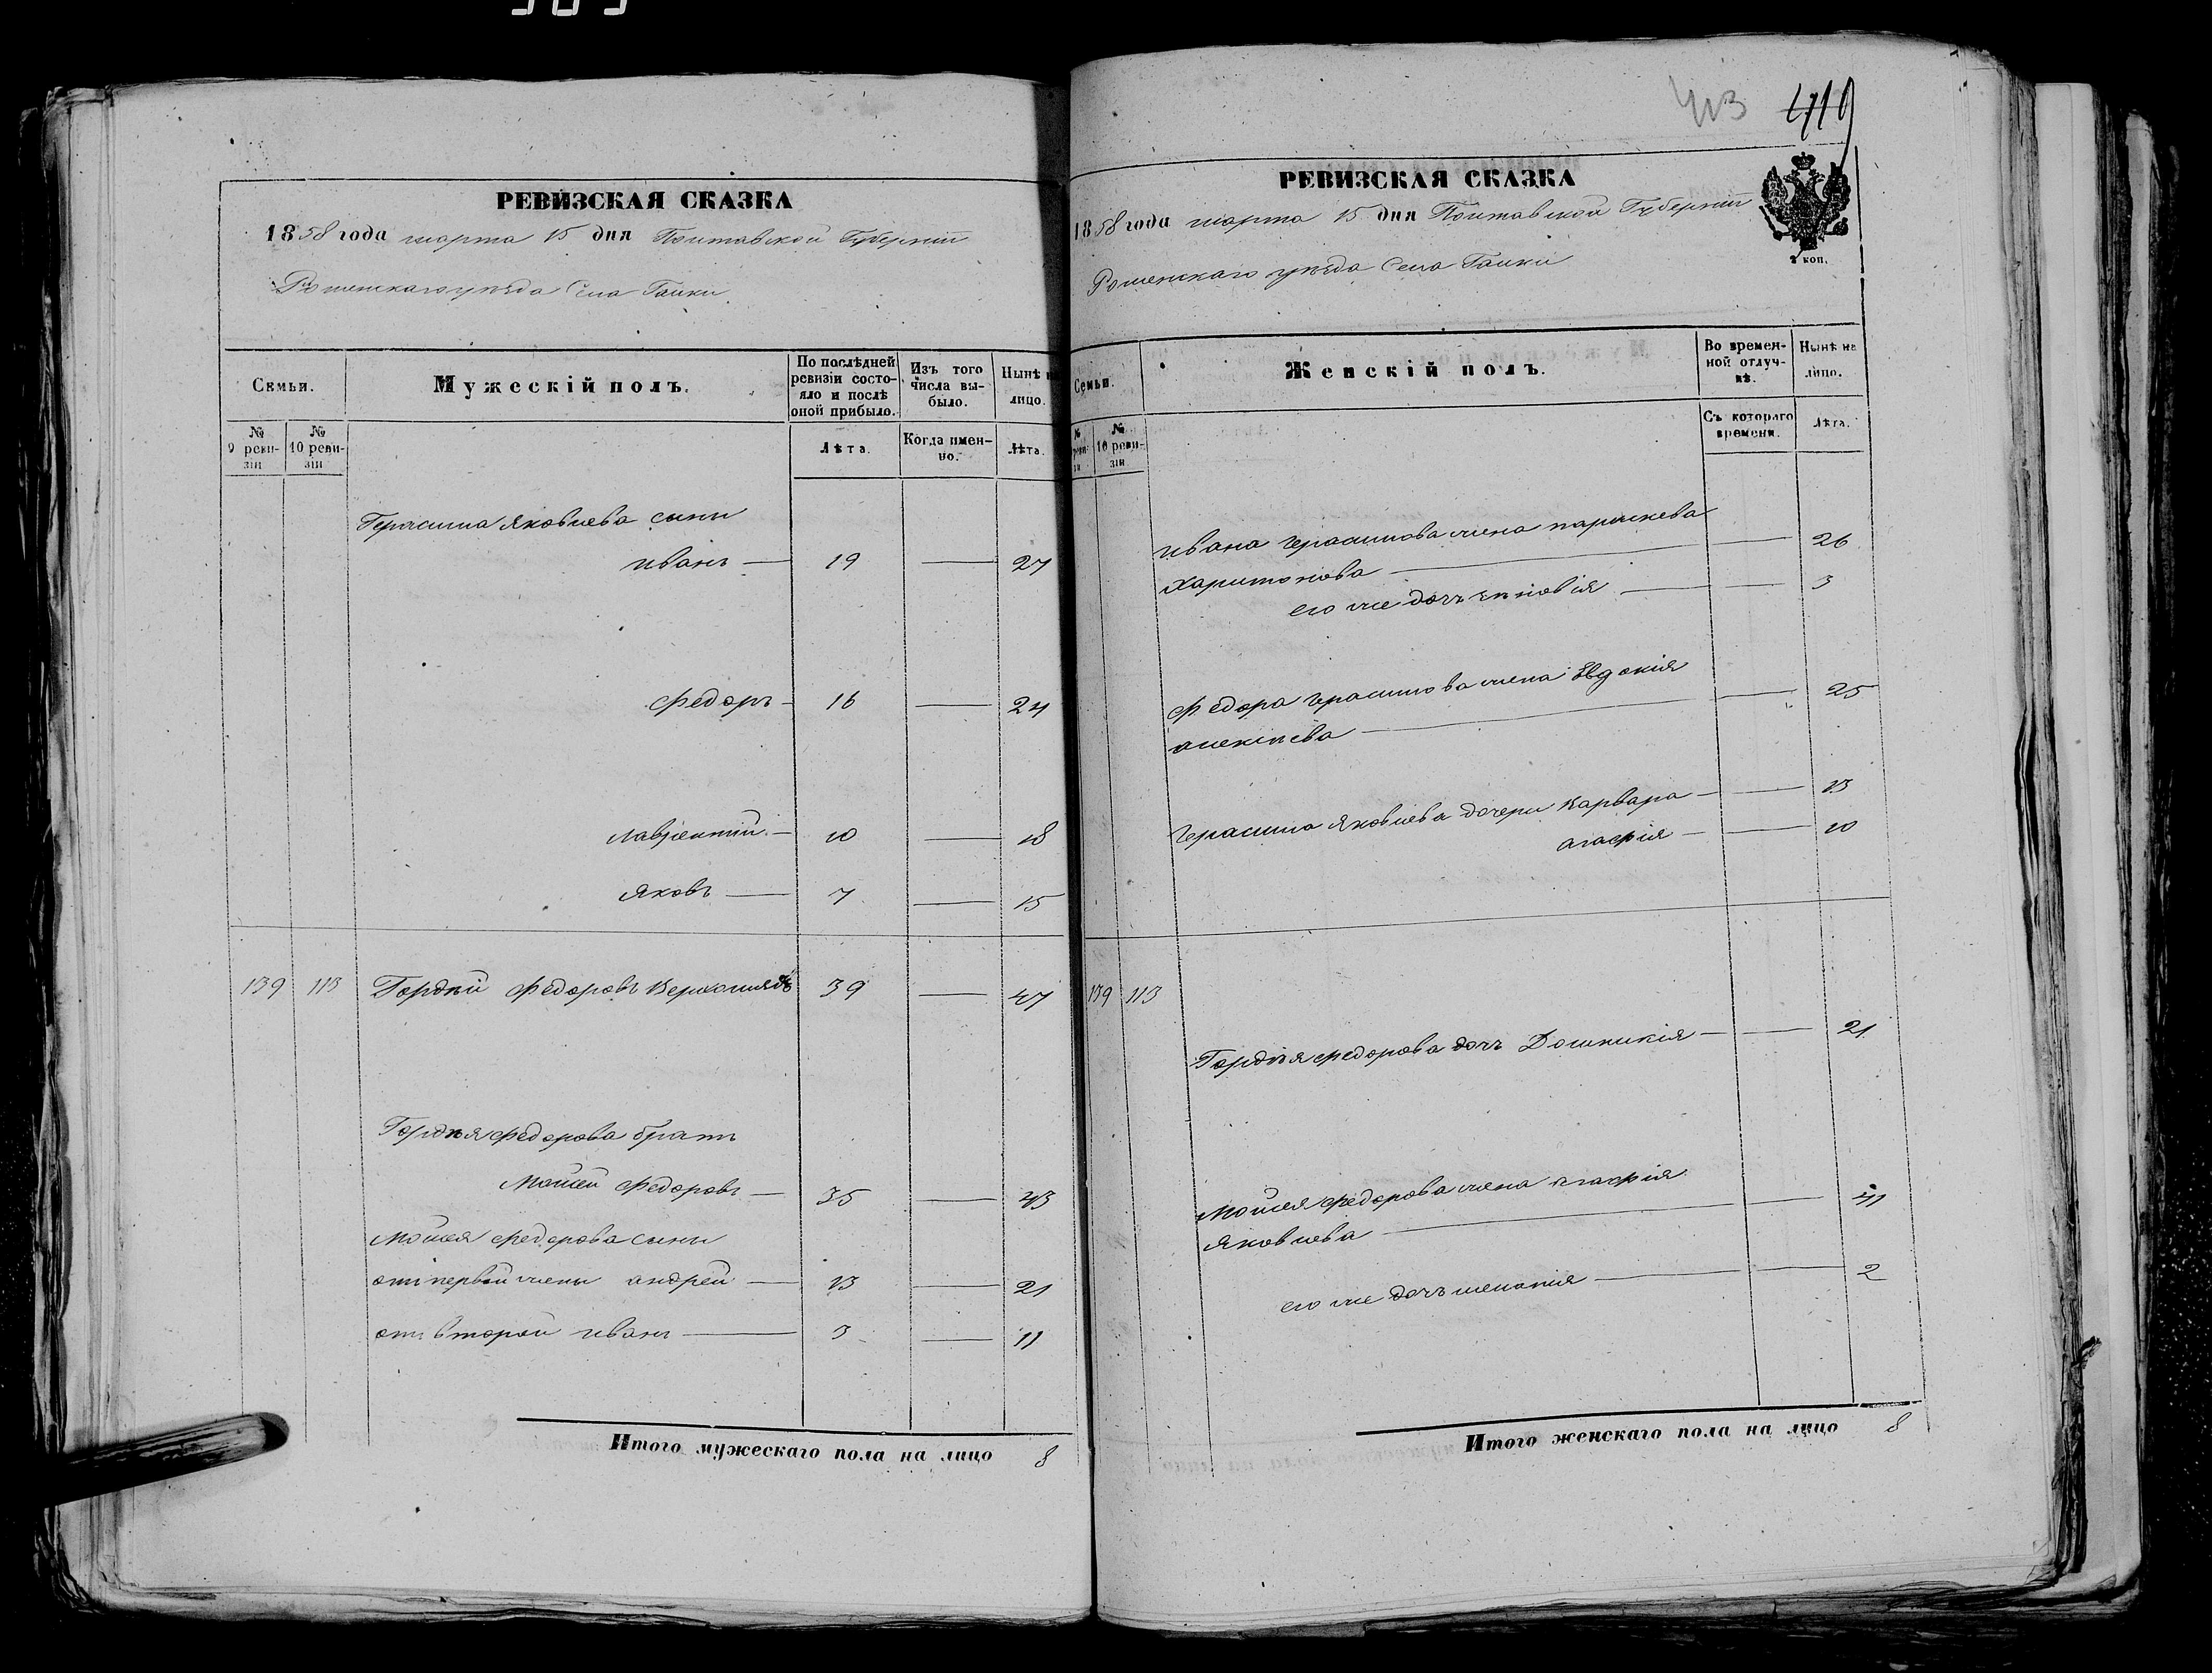 РЕВИЗСКАЯ СКАЗКА
1858 года марта 15 дня Полтавской Губерніи
Роменскаго уѣзда Села Галки
Семьи.
Мужескій полъ.
По послѣдней ревизіи состояло и послѣ оной прибыло.
Изъ того числа выбыло.
Нынѣ на лицо.
№ 9 ревизіи
№ 10 ревизіи
Лѣта.
Когда именно.
Лѣта.
Герасима Яковлева сыны
иванъ — 19 — 27
федоръ — 16 — 24
лаврентій — 10 — 18
яковъ — 7 — 15
139 113 Гордѣй федоровъ 39 — 47
Гордѣя федорова братъ
Моисей федоровъ — 35 — 43
моисея федорова сыны
отъ первой жены андрей — 13 — 21
отъ второй иванъ — 3 — 11
Итого мужескаго пола на лицо 8
419
РЕВИЗСКАЯ СКАЗКА
1858 года марта 15 дня Полтавской Губерніи
Роменскаго уѣзда Села Галки
коп.
Семьи.
Женскій полъ.
Во временной отлучкѣ.
Нынѣ на лицо.
№ 10 ревизіи
Съ котораго времени.
Лѣта.
ивана герасимова жена параскева
харитонова — — 26
его же дочь — — 3
федора герасимова жена Евдокія
алексѣева — — 25
герасима яковлева дочери варвара — — 13
агафія — — 10
139 113
Гордѣя федорова дочь Домникія — — 21
моисея федорова жена агафія
яковлева — — 41
его же дочь меланія — — 2
Итого женскаго пола на лицо 8